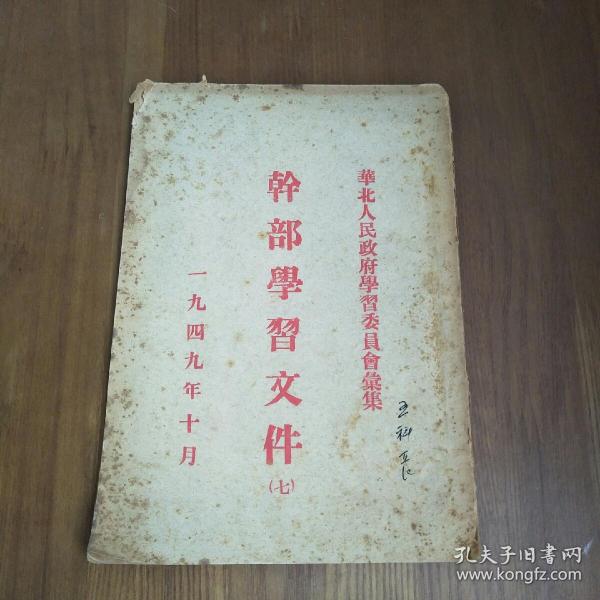 華北人民政府學習委員會彙集
幹部學習文件
(七)
一九四九年十月
王科長
孔夫子旧書网
www.kongfz.com